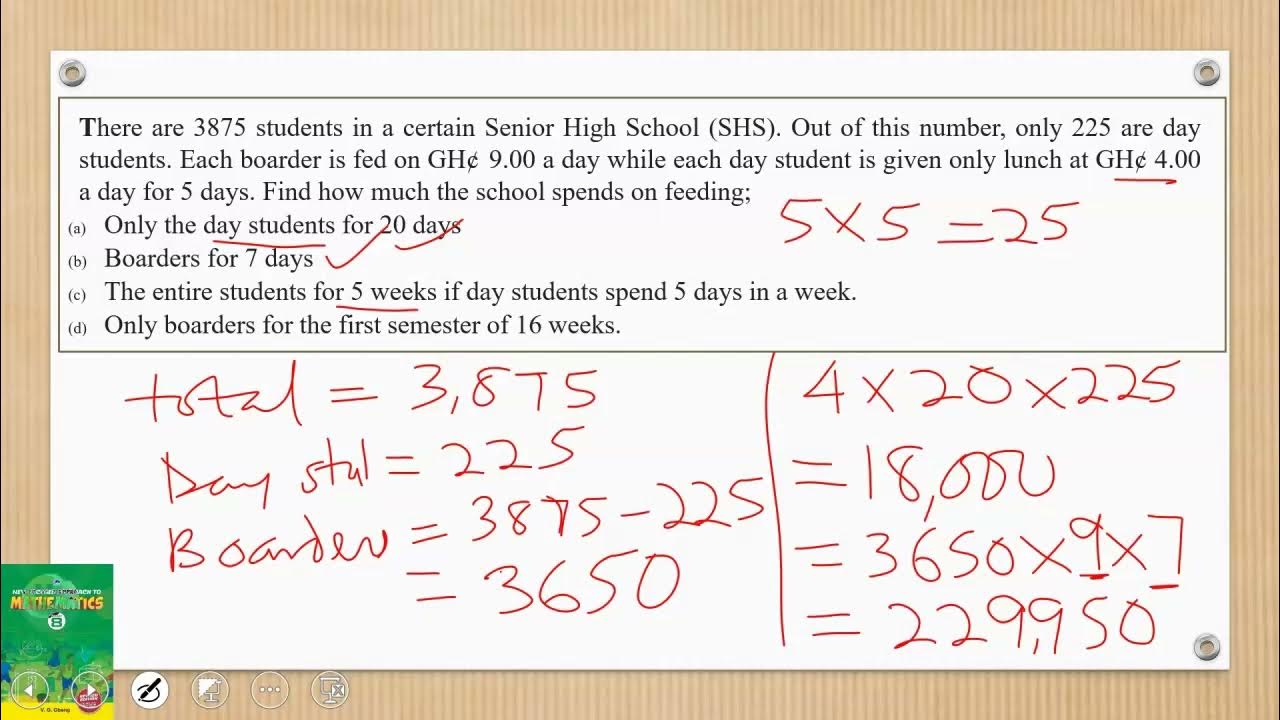 There are 3875 students in a certain Senior High School (SHS). Out of this number, only 225 are day
students. Each boarder is fed on GH¢ 9.00 a day while each day student is given only lunch at GH¢ 4.00
a day for 5 days. Find how much the school spends on feeding;
(a) Only the day students for 20 days
(b) Boarders for 7 days
(c) The entire students for 5 weeks if day students spend 5 days in a week.
(d) Only boarders for the first semester of 16 weeks.
5 × 5 = 25
total = 3,875
Day stud = 225
Boarders = 3875 - 225
= 3650
4 × 20 × 225
= 18,000
= 3650 × 9 × 7
= 229,950
MATHEMATICS